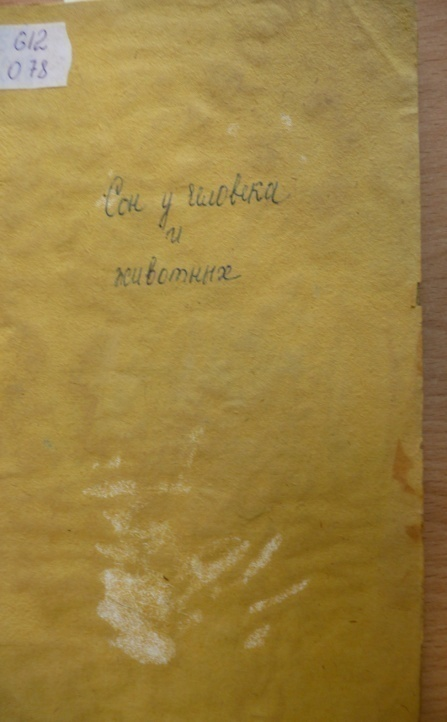 612
О 78
Сон у человека
и
животных